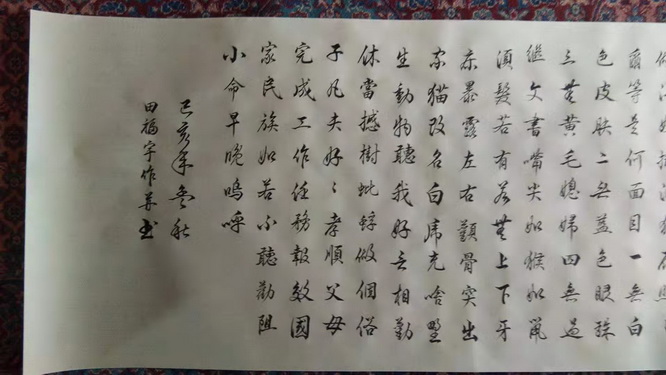 爾等是何面目一無白
色皮肤二無蓝色眼珠
三無黄毛媳婦四無過
继文書嘴尖如猴如鼠
須髮若有若無上下牙
赤暴露左右颧骨突出
家猫改名白虎充啥野
生動物聽我好言相勸
休當撼樹蚍蜉做個俗
子凡夫好好孝順父母
完成工作任務報效國
家民族如若不聽勸阻
小命早晚嗚呼
己亥年冬秋
田福宇作并书